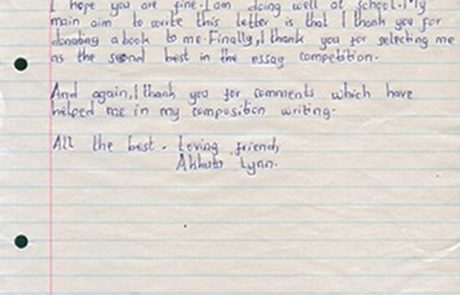 I hope you are fine. I am doing well at school. My
main aim to write this letter is that I thank you for
donating a book to me. Finally, I thank you for selecting me
as the second best in the essay competition.
And again, I thank you for comments which have
helped me in my composition writing.
All the best. Loving friend,
Lynn.